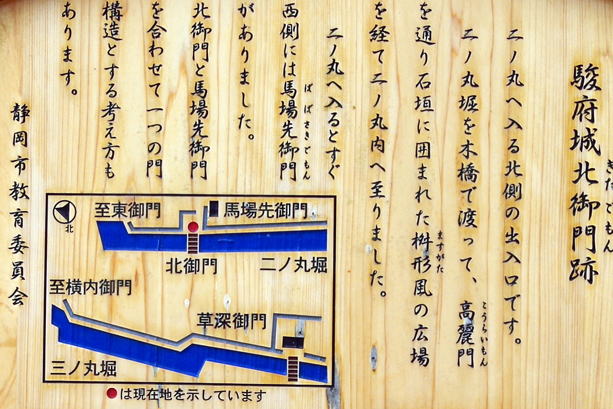 駿府城北御門跡
きたごもん
二ノ丸へ入る北側の出入口です。
二ノ丸堀を木橋で渡って、高麗門
こうらいもん
を通り石垣に囲まれた桝形風の広場
ますがた
を経て二ノ丸内へ至りました。
二ノ丸へ入るとすぐ
西側には馬場先御門
ばばさきごもん
がありました。
北御門と馬場先御門
を合わせて一つの門
構造とする考え方も
あります。
静岡市教育委員会
北
至東御門
馬場先御門
北御門
二ノ丸堀
至横内御門
草深御門
三ノ丸堀
●は現在地を示しています